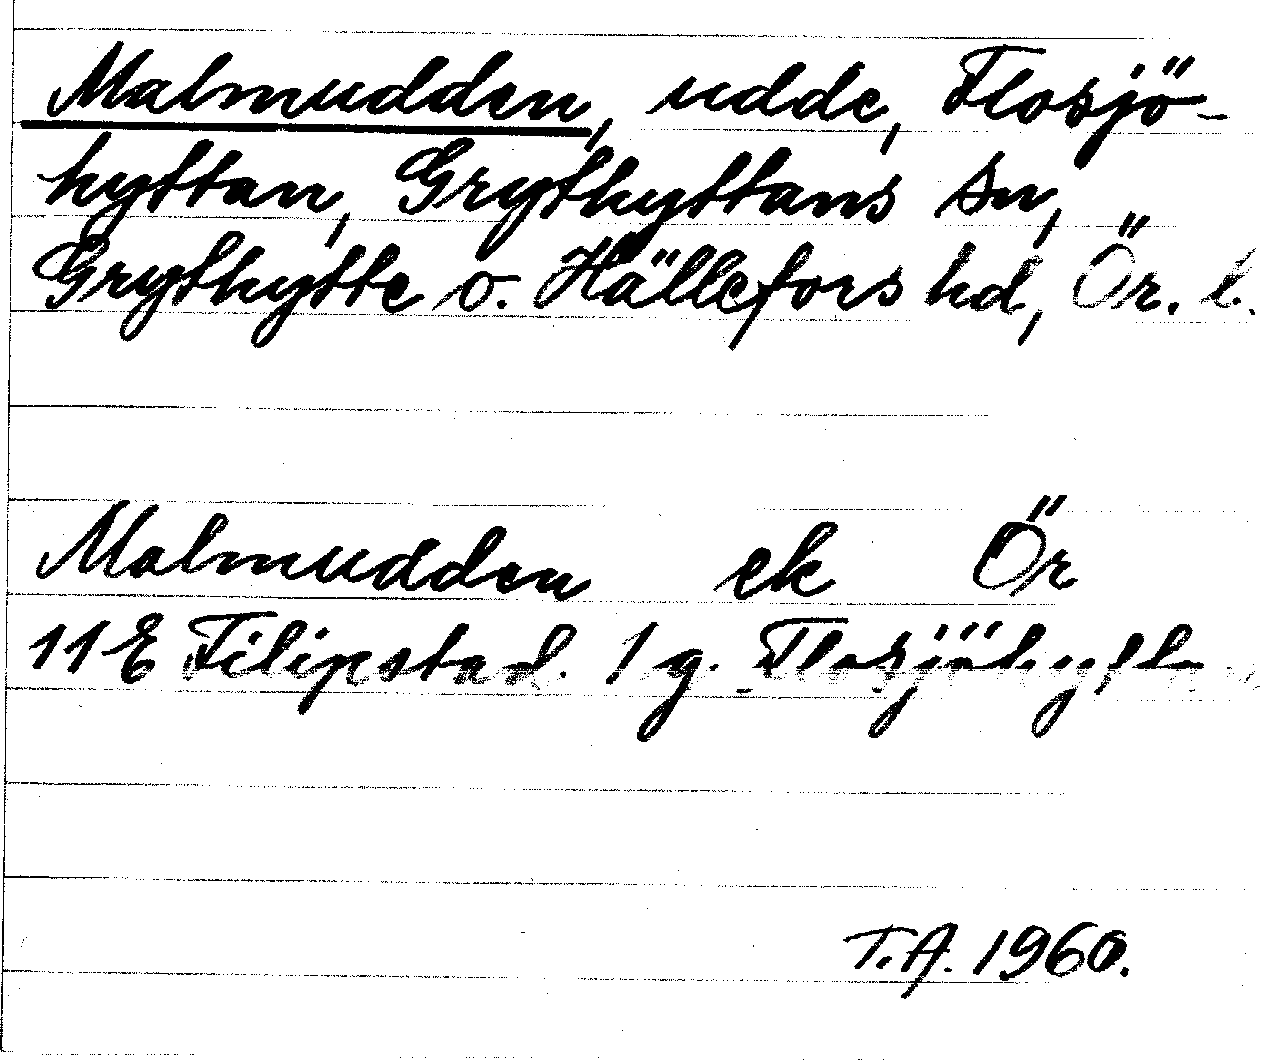 Malmudden, udde, Flosjö-
hyttan, Grythyttans sn,
Grythytte o. Hällefors hd, Ör. l.
Malmudden ek Ör
11E Filipstad. 1 g. Flosjöhytta
T.A. 1960.